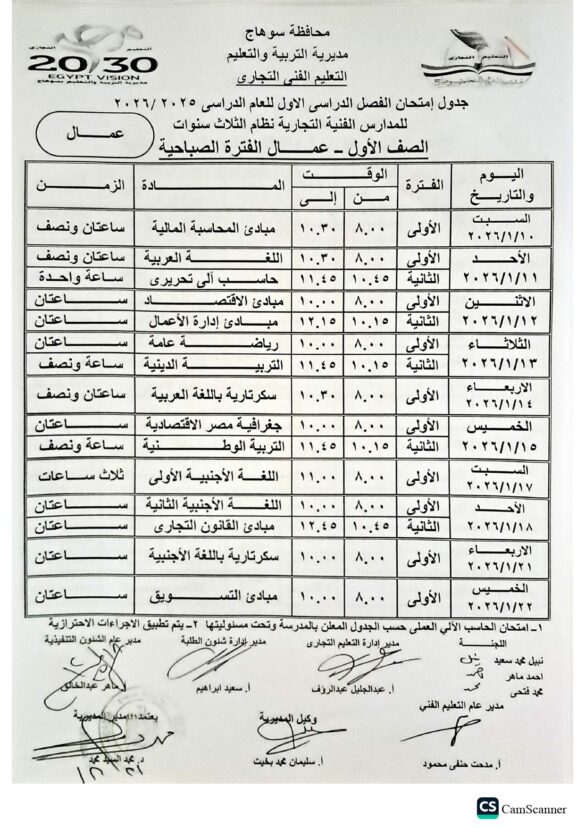 محافظة سوهاج
مديرية التربية والتعليم
التعليم الفنى التجارى
20/30
EGYPT VISION
مديرية التربية والتعليم بسوهاج
جدول إمتحان الفصل الدراسى الاول للعام الدراسى ٢٠٢٥ /٢٠٢٦
للمدارس الفنية التجارية نظام الثلاث سنوات
عمال
الصف الأول – عمال الفترة الصباحية
اليوم والتاريخ الفترة الوقت المادة الزمن
من إلى
السبت ٢٠٢٦/١/١٠ الأولى ٨.٠٠ ١٠.٣٠ مبادئ المحاسبة المالية ساعتان ونصف
الأحد ٢٠٢٦/١/١١ الأولى ٨.٠٠ ١٠.٣٠ اللغة العربية ساعتان ونصف
الثانية ١٠.٤٥ ١١.٤٥ حاسب آلى تحريرى ساعة واحدة
الاثنين ٢٠٢٦/١/١٢ الأولى ٨.٠٠ ١٠.٠٠ مبادئ الاقتصاد ساعتان
الثانية ١٠.١٥ ١٢.١٥ مبادئ إدارة الأعمال ساعتان
الثلاثاء ٢٠٢٦/١/١٣ الأولى ٨.٠٠ ١٠.٠٠ رياضة عامة ساعتان
الثانية ١٠.١٥ ١١.٤٥ التربية الدينية ساعة ونصف
الاربعاء ٢٠٢٦/١/١٤ الأولى ٨.٠٠ ١٠.٣٠ سكرتارية باللغة العربية ساعتان ونصف
الخميس ٢٠٢٦/١/١٥ الأولى ٨.٠٠ ١٠.٠٠ جغرافية مصر الاقتصادية ساعتان
الثانية ١٠.١٥ ١١.٤٥ التربية الوطنية ساعة ونصف
السبت ٢٠٢٦/١/١٧ الأولى ٨.٠٠ ١١.٠٠ اللغة الأجنبية الأولى ثلاث ساعات
الأحد ٢٠٢٦/١/١٨ الأولى ٨.٠٠ ١٠.٠٠ اللغة الأجنبية الثانية ساعتان
الثانية ١٠.٤٥ ١٢.٤٥ مبادئ القانون التجارى ساعتان
الاربعاء ٢٠٢٦/١/٢١ الأولى ٨.٠٠ ١٠.٠٠ سكرتارية باللغة الأجنبية ساعتان
الخميس ٢٠٢٦/١/٢٢ الأولى ٨.٠٠ ١٠.٠٠ مبادئ التسويق ساعتان
١ – امتحان الحاسب الآلي العملى حسب الجدول المعلن بالمدرسة وتحت مسئوليتها ٢ – يتم تطبيق الاجراءات الاحترازية
اللجنة مدير إدارة التعليم التجارى مدير إدارة شئون الطلبة مدير عام الشئون التنفيذية
نبيل محمد سعيد
احمد ماهر
محمد فتحى
أ. عبدالجليل عبدالرؤف أ. سعيد ابراهيم د. ماهر عبدالخالق
مدير عام التعليم الفني وكيل المديرية يعتمد،،، مدير المديرية
أ. مدحت حنفى محمود أ. سليمان محمد بخيت د. محمد السيد محمد
CS CamScanner